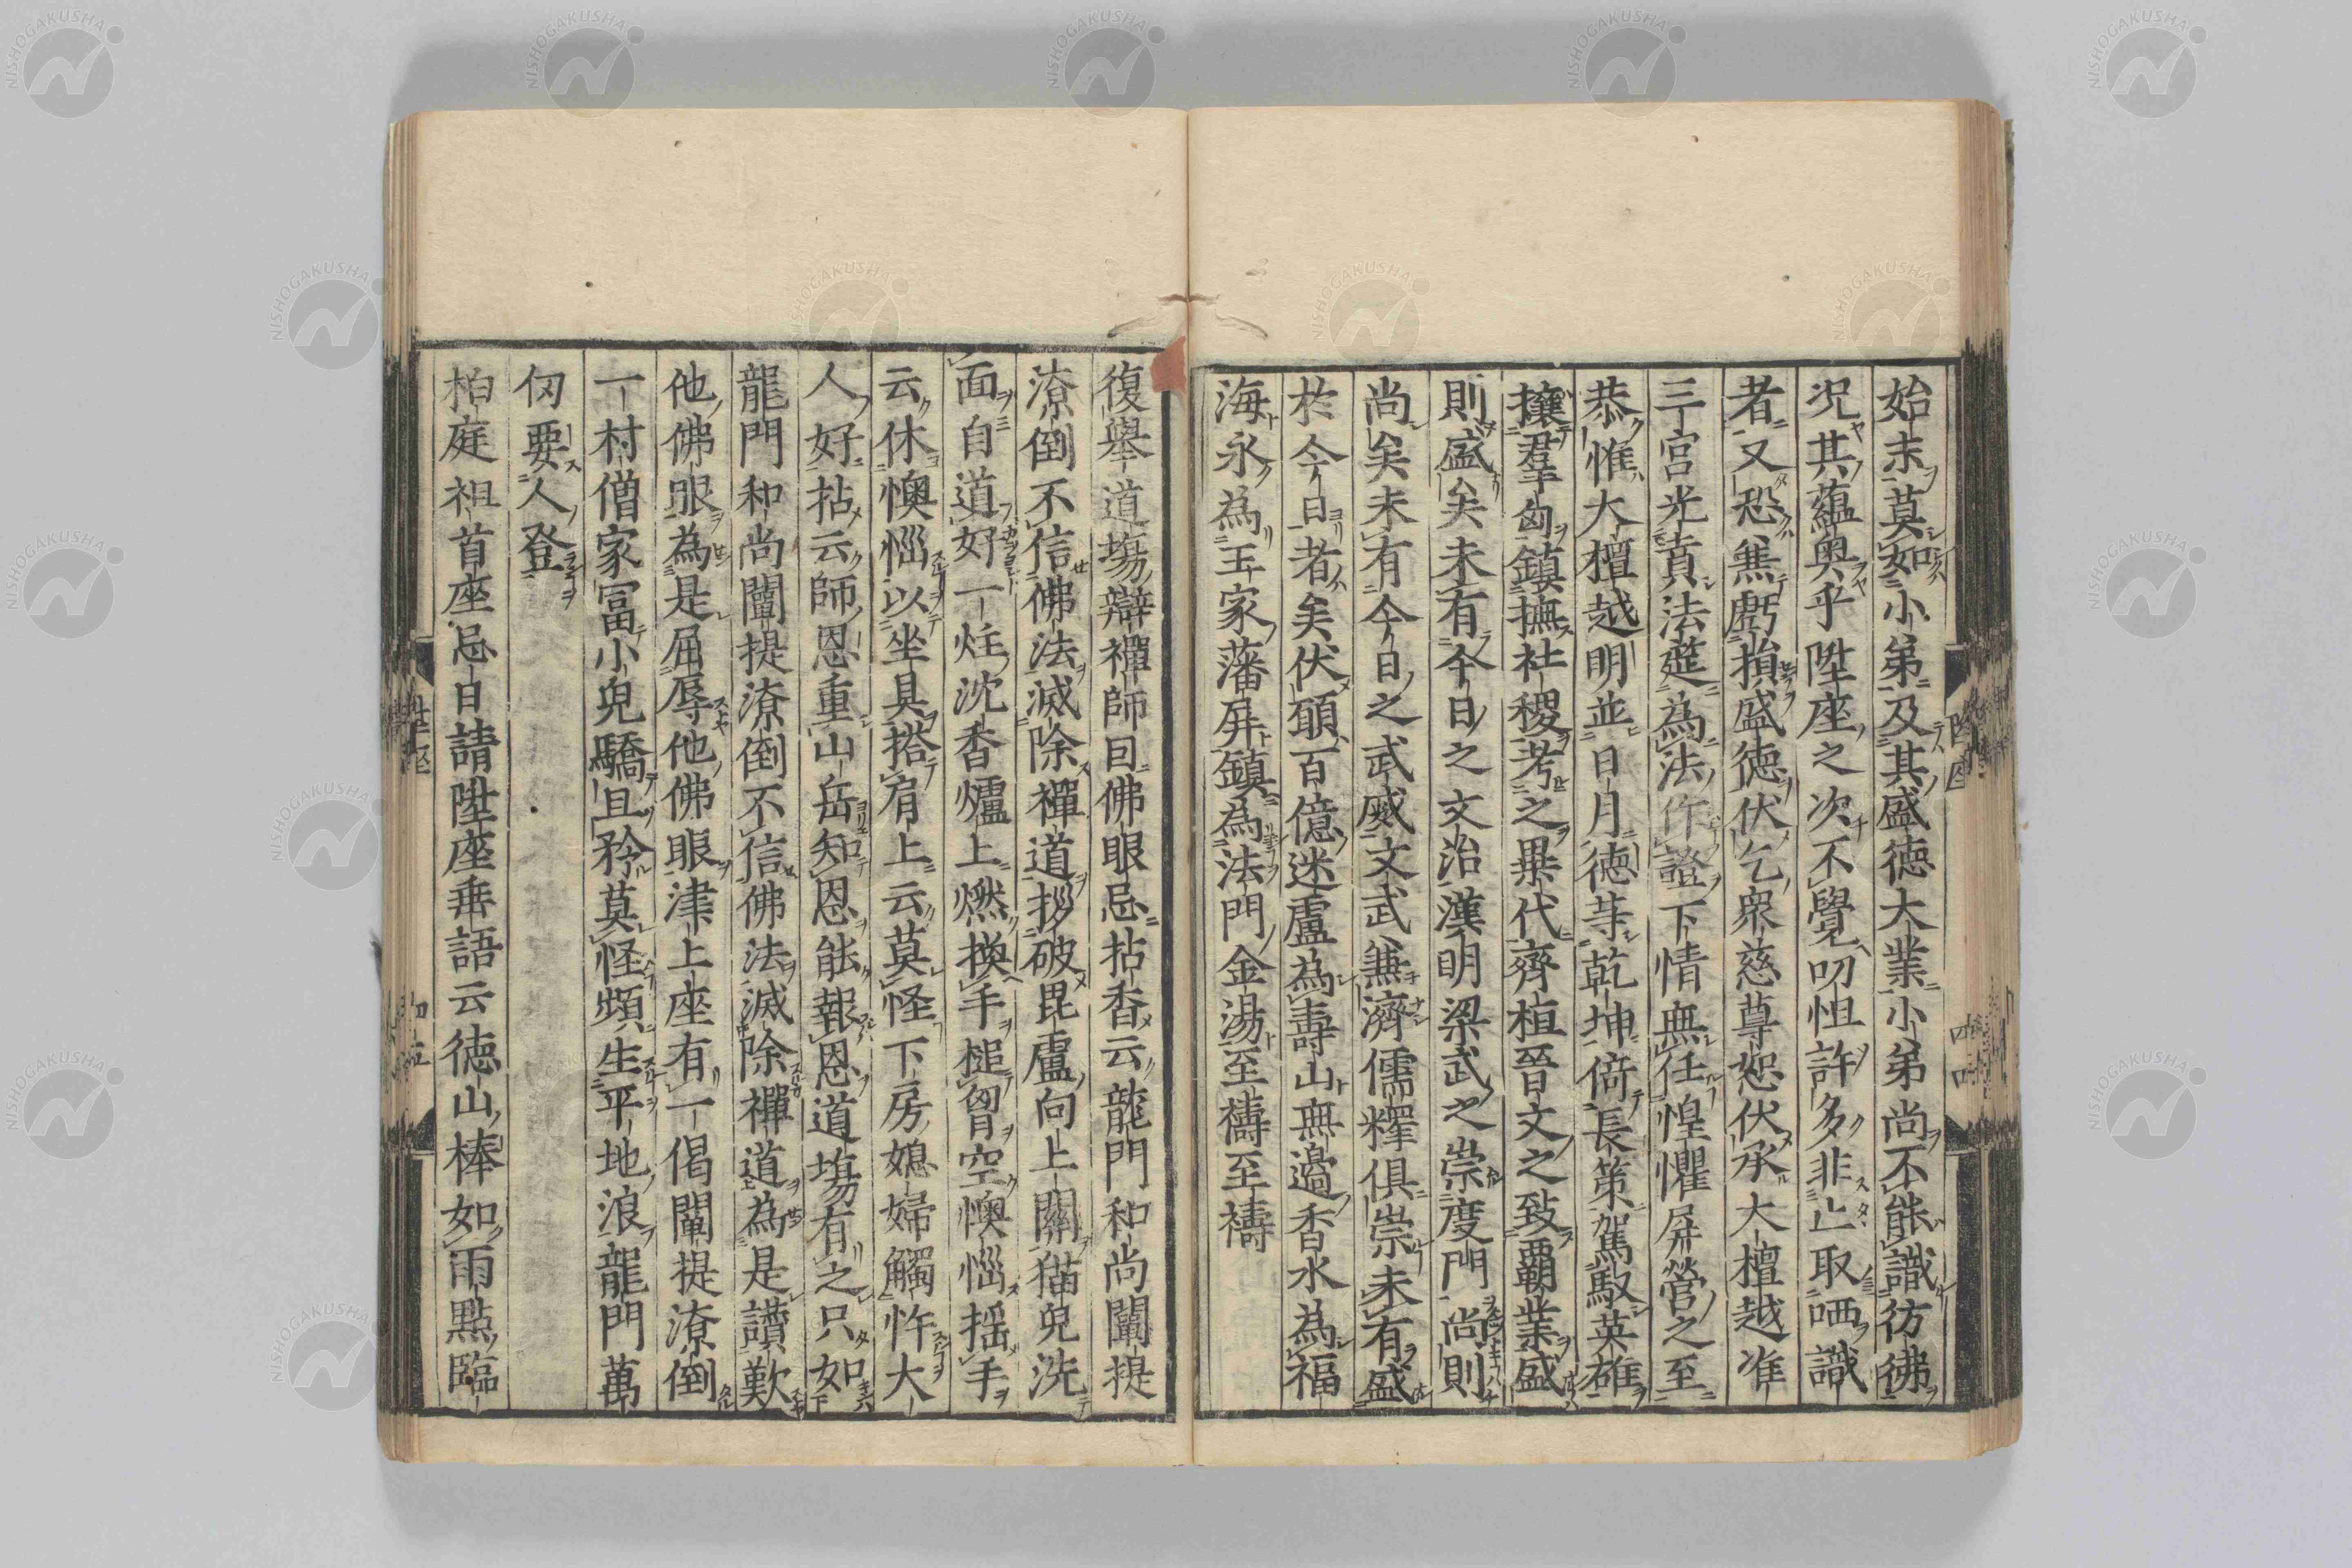 始末莫如小弟及其盛德大業小弟尚不能識彷彿
況其蘊奥乎陞座之次不覺叨怛許多非止取哂識
者又恐無虧損盛德伏乞衆慈尊恕伏承大檀越准
三宮光賁法莚為法作證下情無任惶懼屏營之至
恭惟大檀越明並日月德等乾坤倚長策駕馭英雄
攘羣匈鎮撫社稷考之畢代齊桓晉文之致覇業盛
則盛矣未有今日之文治漢明梁武之崇度門尚則
尚矣未有今日之武威文武兼濟儒釋俱崇未有盛
於今日者矣伏願百億迷盧為壽山無邊香水為福
海永為王家藩屏鎮為法門金湯至禱至禱
復舉道塲辯禪師因佛眼忌拈香云龍門和尚闡提
潦倒不信佛法滅除禪道拶破毘盧向上關猫兒洗
面自道好一炷沈香爐上燃換手搥胷空懊惱揺手
云休懊惱以坐具搭肩上云莫怪下房媳婦觸忤大
人好拈云師恩重山岳知恩能報恩道塲有之只如
龍門和尚闡提潦倒不信佛法滅除禪道為是讃歎
他佛眼為是屈辱他佛眼津上座有一偈闡提潦倒
一村僧家冨小兒驕且矜莫怪頻生平地浪龍門萬
仞要人登
栢庭祖首座忌日請陞座垂語云德山棒如雨點臨
NISHOGAKUSHA